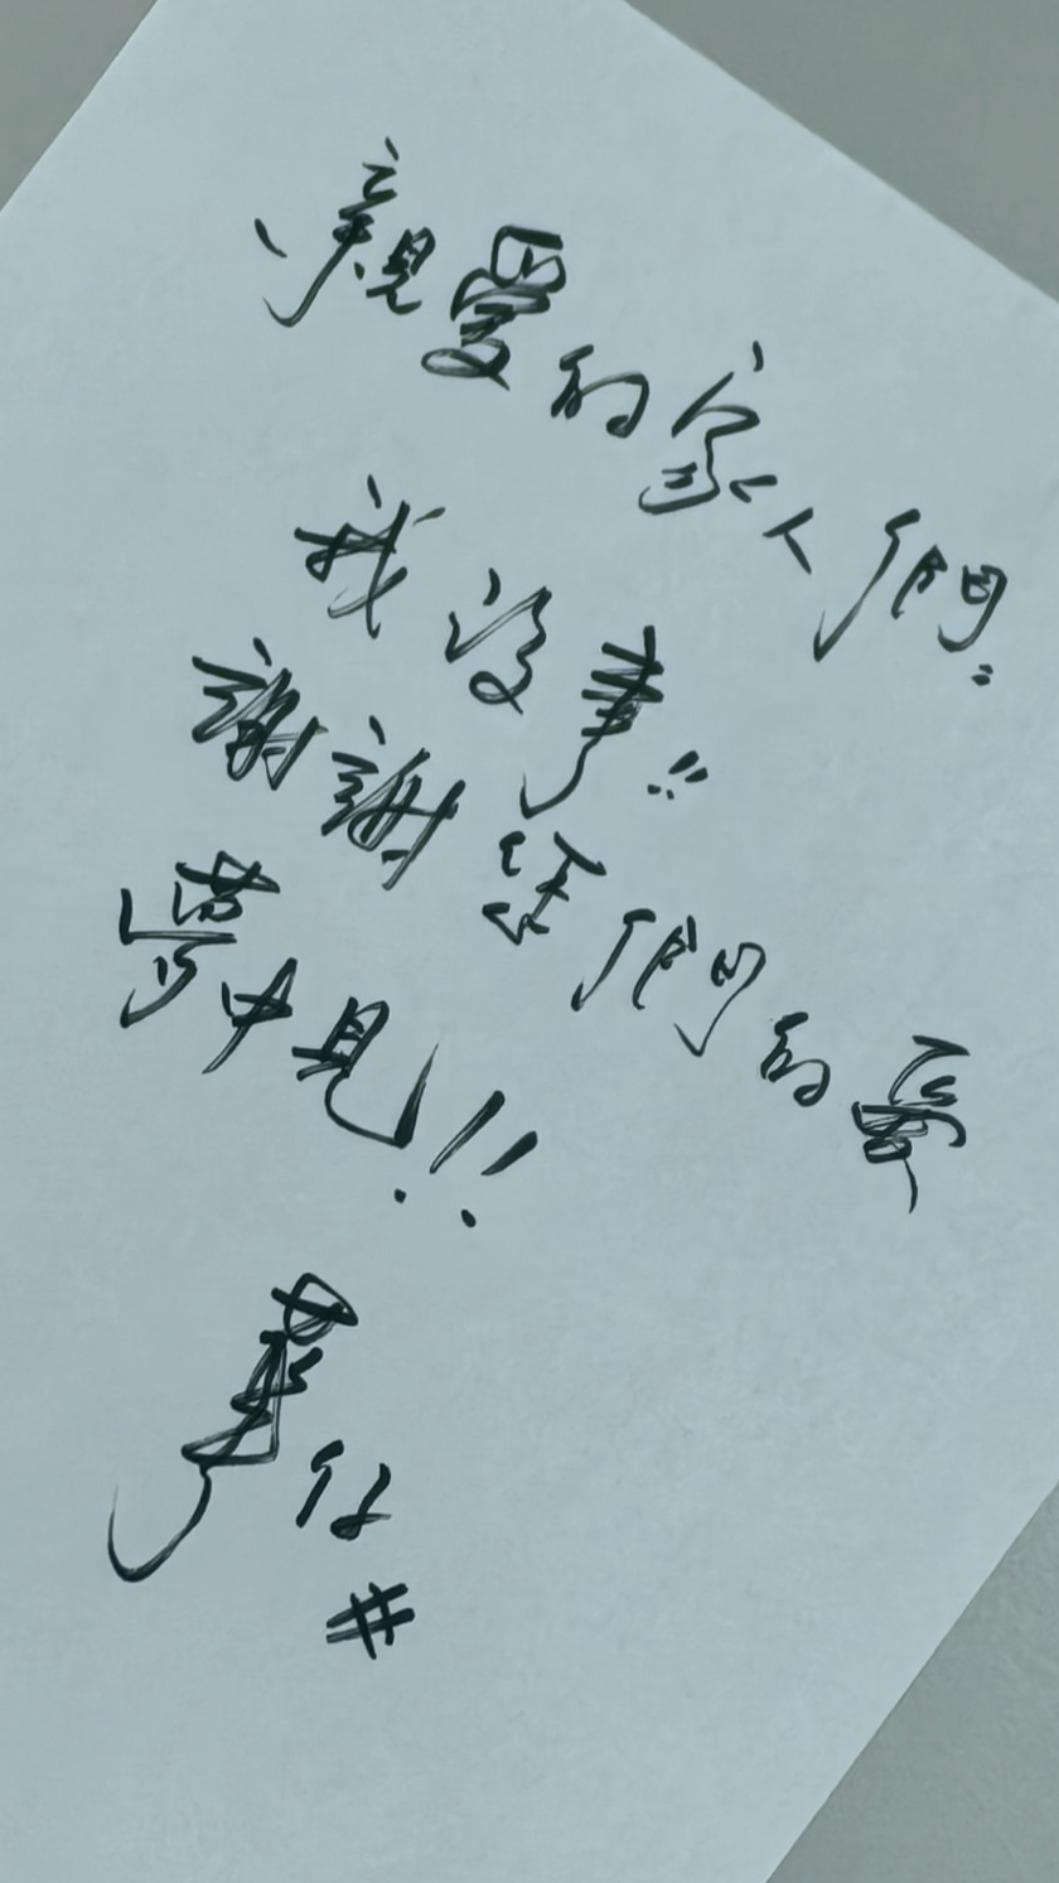 親愛的家人們：
我沒事!!
謝謝你們的愛
夢中見!!!
#